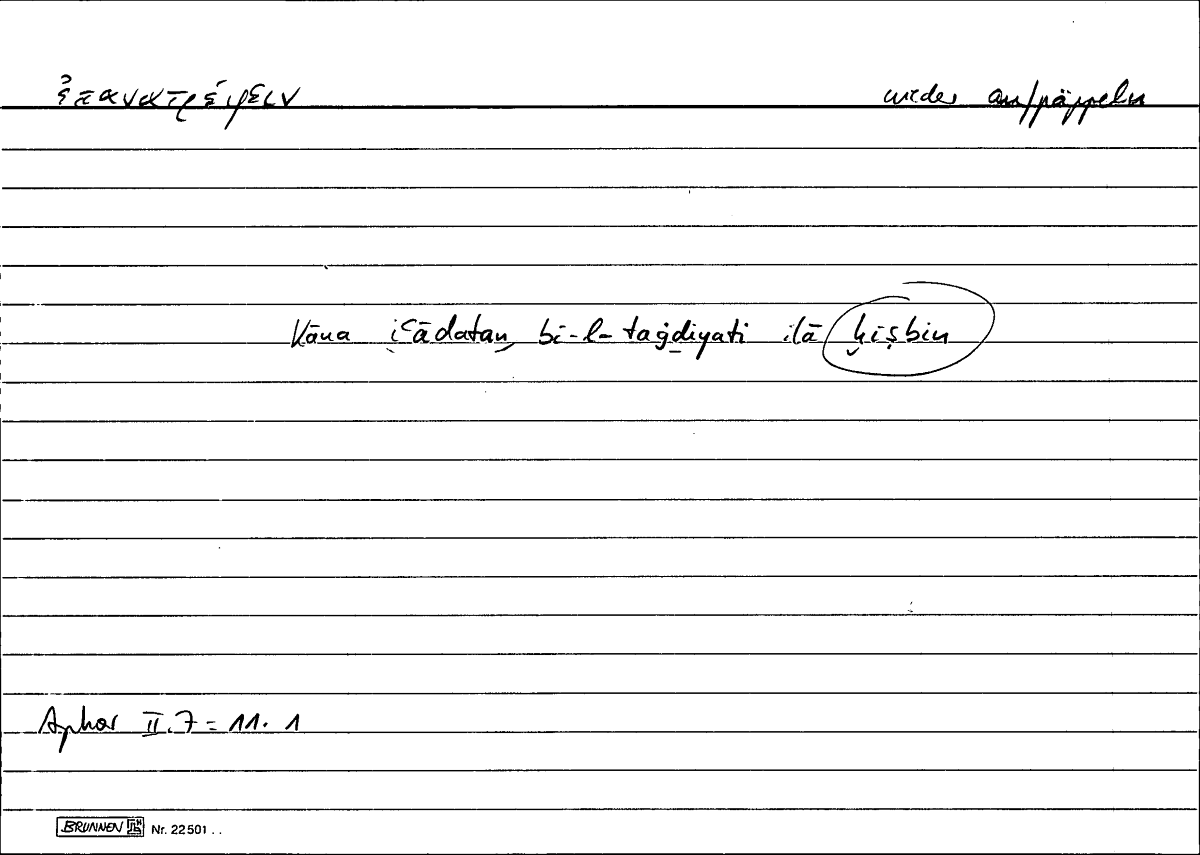 ἐπανατρέφειν wieder an/päppeln
kāna iʿādatan bi-l-taġḏiyati ilā ḫiṣbin
Aphor II.7 = 11. 1
BRUNNEN Nr. 22501 . .